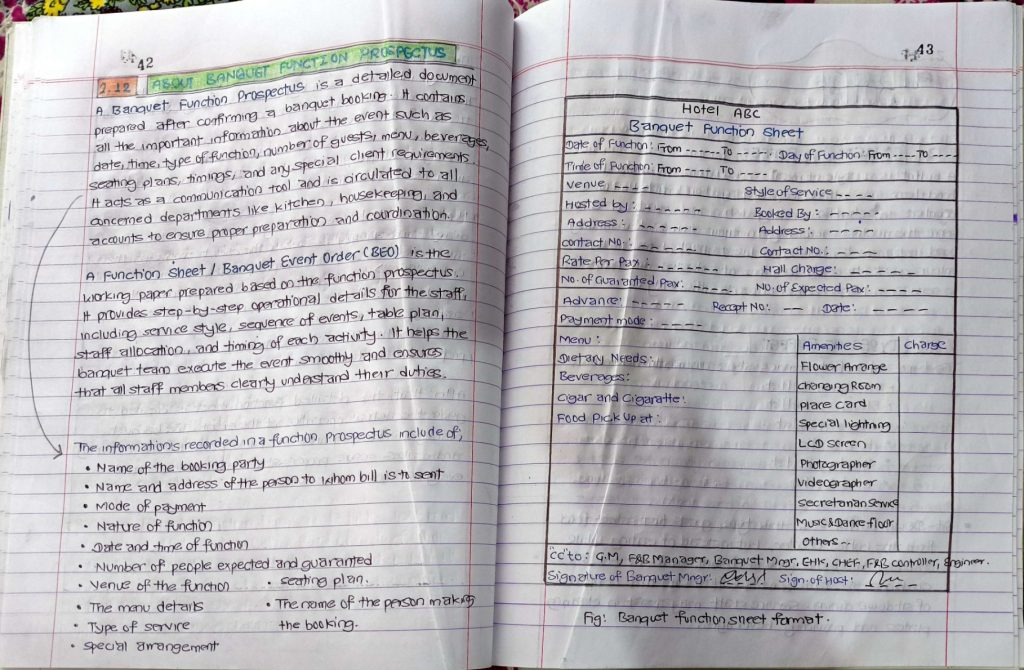 42
2.12 ABOUT BANQUET FUNCTION PROSPECTUS
A Banquet Function Prospectus is a detailed document
prepared after confirming a banquet booking. It contains
all the important information about the event such as
date, time, type of function, number of guests, menu, beverages,
seating plans, timings, and any special client requirements.
It acts as a communication tool and is circulated to all
concerned departments like kitchen, housekeeping, and
accounts to ensure proper preparation and coordination.
A Function Sheet / Banquet Event Order (BEO) is the
working paper prepared based on the function prospectus.
It provides step-by-step operational details for the staff,
including service style, sequence of events, table plan,
staff allocation, and timing of each activity. It helps the
banquet team execute the event smoothly and ensures
that all staff members clearly understand their duties.
The informations recorded in a function Prospectus include of;
• Name of the booking party
• Name and address of the person to whom bill is to sent
• Mode of payment
• Nature of function
• Date and time of function
• Number of people expected and guaranted
• Venue of the function • seating plan.
• The menu details • The name of the person making
• Type of service the booking.
• Special arrangement
43
Hotel ABC
Banquet Function Sheet
Date of Function: From ------ To ----- Day of Function: From ---- To ----
Time of Function: From ---- To ----
Venue ---- Style of Service ----
Hosted by: ------ Booked By: -----
Address: ------ Address: ----
Contact NO.: ------ Contact NO.: ----
Rate Per Pax: ------- Hall Charge: -----
No. of Guaranted Pax: ----- No. of Expected Pax: ----
Advance: ----- Recept No: -- Date: ----
Payment mode: ----
Menu : Amenities Charge
Dietary Needs: Flower Arrange
Beverages: changing Room
Cigar and Cigaratte: Place Card
Food Pick Up at : Special lightning
LCD screen
Photographer
Videographer
Secretarian Service
Music & Dance floor
Others..
"CC" to : G.M, F&B Manager, Banquet Mngr, EHK, CHEF, F&B controller, Engineer.
Signature of Banquet Mngr: Sign. of Host:
Fig: Banquet function sheet format.